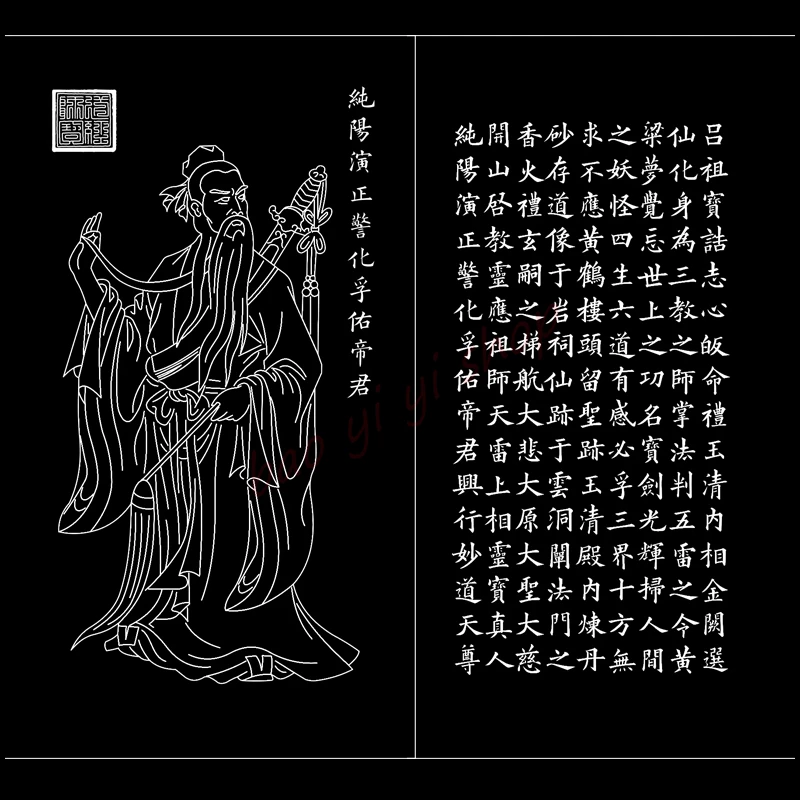 道經師寶
純陽演正警化孚佑帝君
吕祖寶誥志心皈命禮玉清内相金闕選
仙化身為三教之師掌法判五雷之令黄
粱夢覺忘世上之功名寶劍光輝掃人間
之妖怪四生六道有感必孚三界十方無
求不應黄鶴樓頭留聖跡玉清殿内煉丹
砂存道像于岩祠仙跡于雲洞闡法門之
香火禮玄嗣之梯航大悲大原大聖大慈
開山启教靈應祖師天雷上相靈寶真人
純陽演正警化孚佑帝君興行妙道天尊
yi yi shop